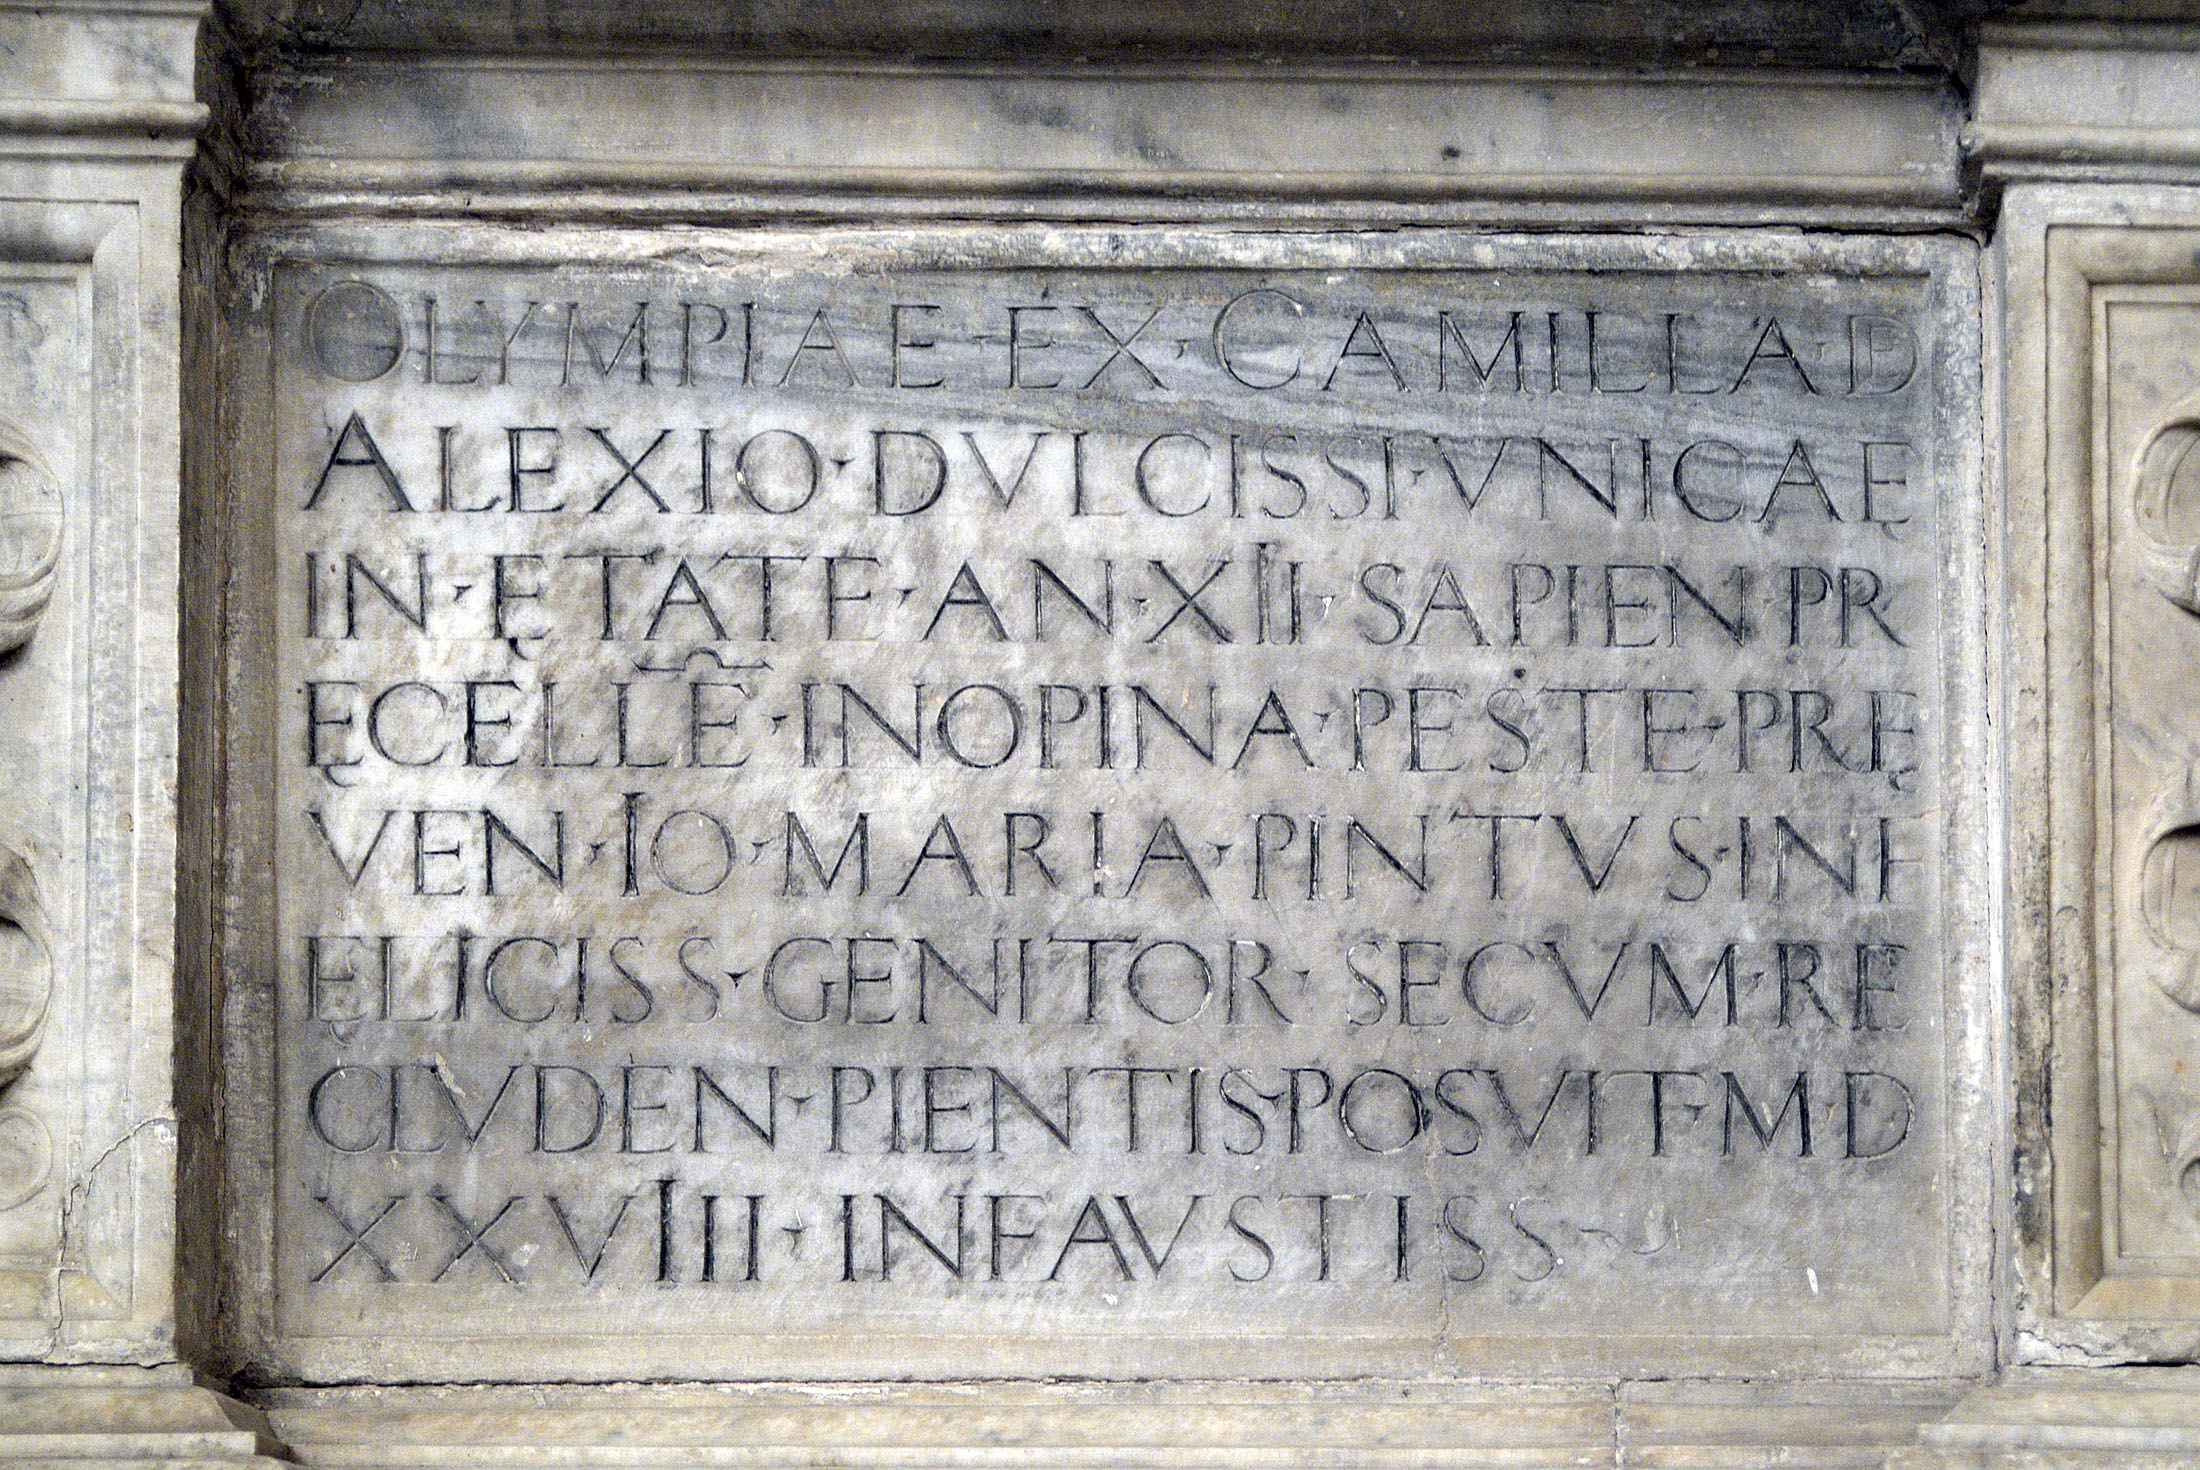 OLYMPIAE · EX · CAMILLA · DE
ALEXIO · DVLCISSI · VNICAĘ
IN · ĘTATE · AN · XII · SAPIEN · PR
ĘCELLẼ · INOPINA · PESTE · PRĘ
VEN · IO · MARIA · PINTVS · INF
ĘLICISS · GENITOR · SECVM · RE
CLVDEN · PIENTIS · POSVIT · M · D
XXVIII · INFAVSTISS